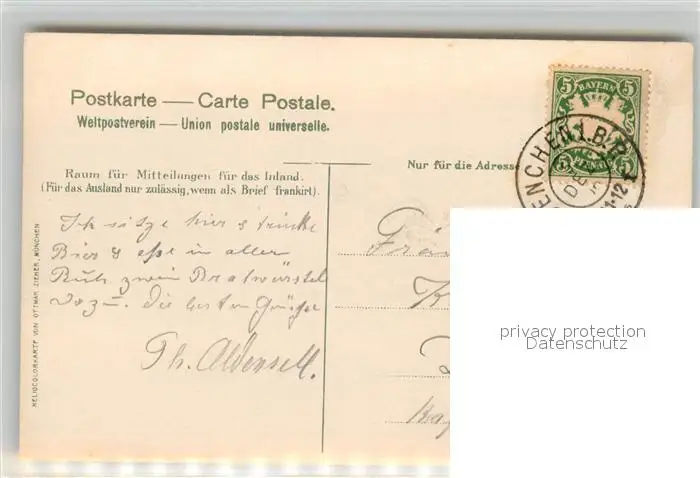 Postkarte — Carte Postale.
Weltpostverein — Union postale universelle.
5 BAYERN 5
5 PFENNIG 5
ENCHEN I.B.P.
DE
11-12
Nur für die Adresse
Raum für Mitteilungen für das Inland.
(Für das Ausland nur zulässig, wenn als Brief frankirt).
Ich sitze hier & trinke
Bier & esse in aller
Ruh zwei Bratwürstel
dazu. Die besten Grüsse
Th.
HELIOCOLORKARTE VON OTTMAR ZIEHER, MÜNCHEN
privacy protection
Datenschutz